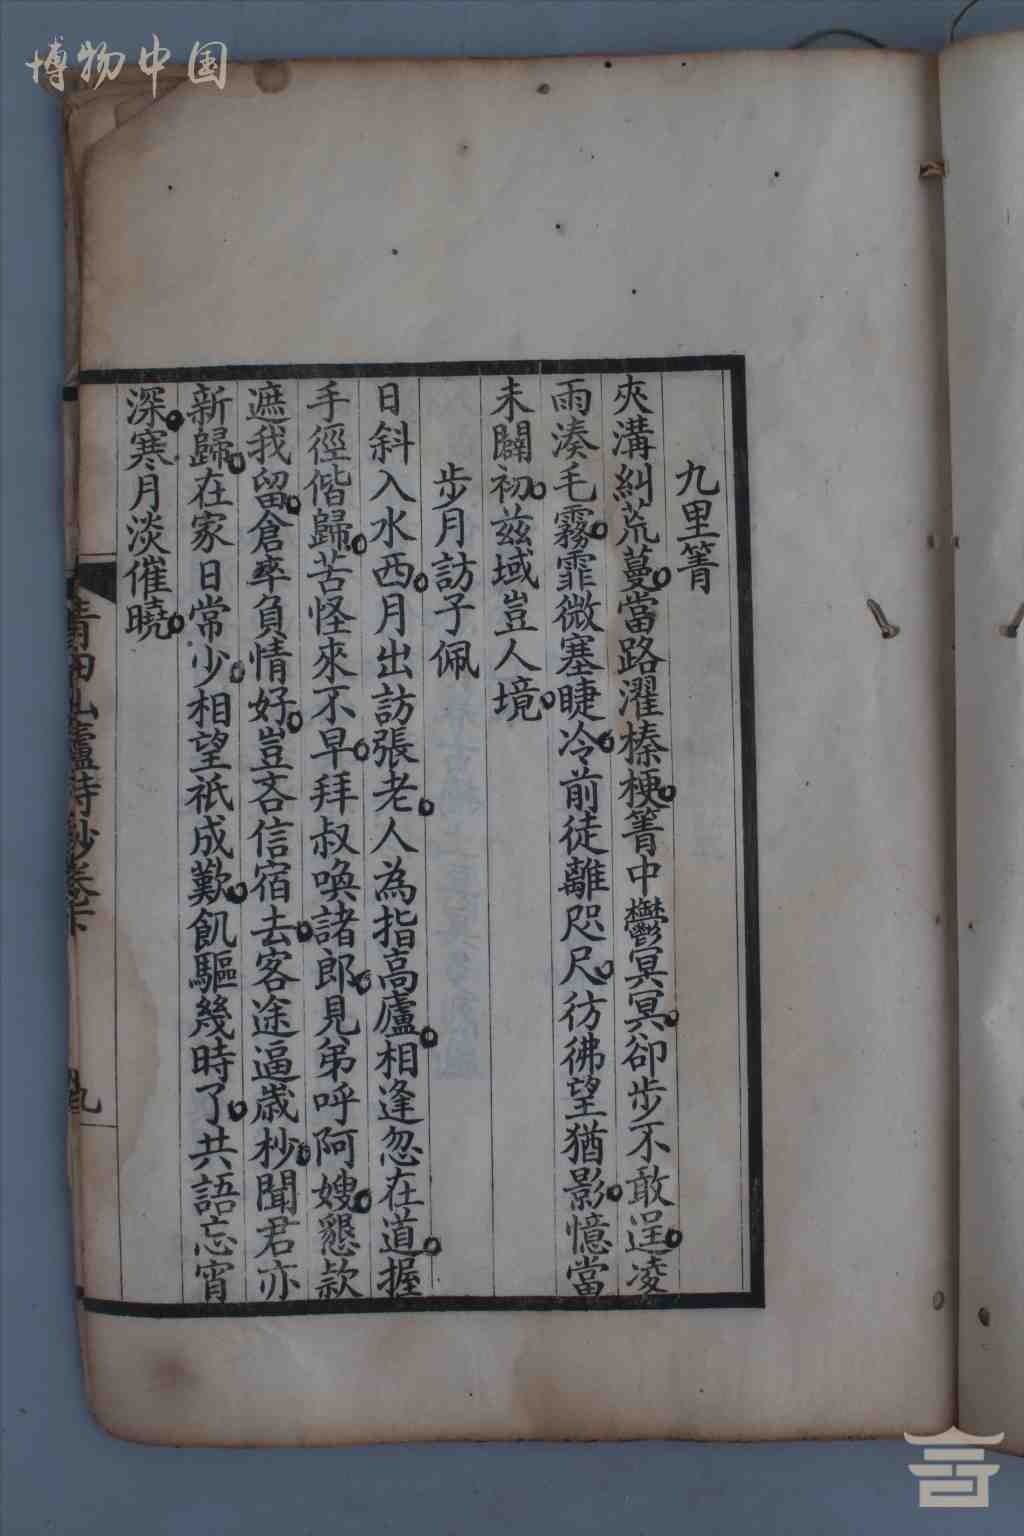 博物中国
九里箐
夾溝糾荒蔓當路濯榛梗箐中鬱冥冥卻步不敢逞凌
雨湊毛霧霏微塞睫冷前徒離咫尺彷彿望猶影憶當
未闢初茲域豈人境
步月訪子佩
日斜入水西月出訪張老人為指高廬相逢忽在道握
手徑偕歸苦怪來不早拜叔喚諸郎見弟呼阿嫂懇款
遮我留倉卒負情好豈吝信宿去客途逼歲杪聞君亦
新歸在家日常少相望祇成歎飢驅幾時了共語忘宵
深寒月淡催曉
青田山廬詩鈔卷下
九